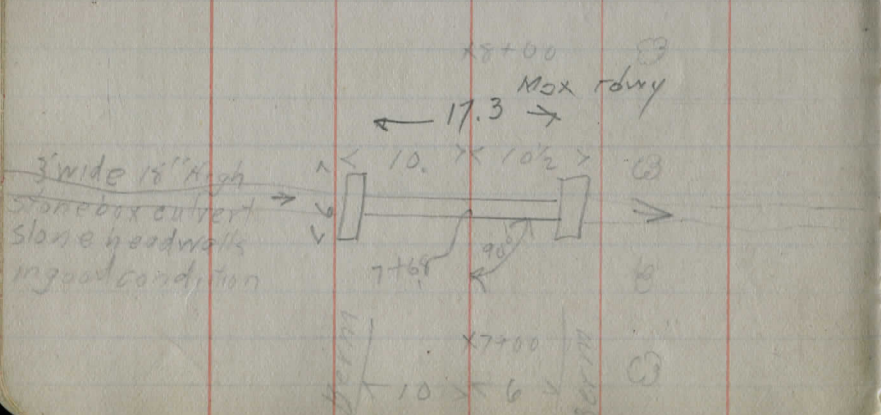 x8+00
Max rdwy
17.3
10. 10½
3' wide 18" High
stonebox culvert
Stone headwalls
in good condition
90°
7+68
x7+00
Berm
10 6